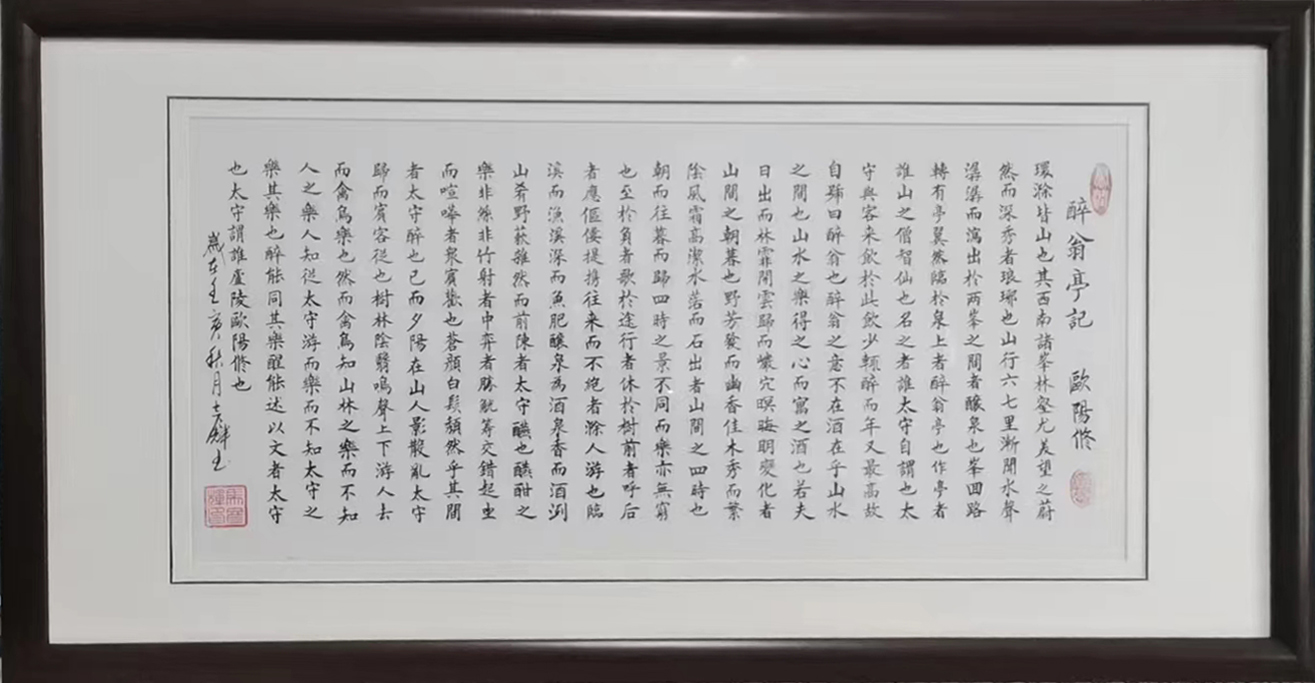 醉翁亭記 歐陽脩
環滁皆山也其西南諸峯林壑尤美望之蔚
然而深秀者琅琊也山行六七里漸聞水聲
潺潺而瀉出於两峯之間者釀泉也峯回路
轉有亭翼然臨於泉上者醉翁亭也作亭者
誰山之僧智仙也名之者誰太守自謂也太
守與客来飲於此飲少輒醉而年又最高故
自號曰醉翁也醉翁之意不在酒在乎山水
之間也山水之樂得之心而寓之酒也若夫
日出而林霏開雲歸而巖穴暝晦明變化者
山間之朝暮也野芳發而幽香佳木秀而繁
陰風霜高潔水落而石出者山間之四時也
朝而往暮而歸四時之景不同而樂亦無窮
也至於負者歌於途行者休於樹前者呼后
者應傴僂提携往来而不絶者滁人游也臨
溪而漁溪深而魚肥釀泉為酒泉香而酒洌
山肴野蔌雜然而前陳者太守醼也醼酣之
樂非絲非竹射者中弈者勝觥筹交錯起坐
而喧嘩者衆賓歡也蒼顔白髮頽然乎其間
者太守醉也已而夕陽在山人影散亂太守
歸而賓客從也樹林陰翳鳴聲上下游人去
而禽鳥樂也然而禽鳥知山林之樂而不知
人之樂人知從太守游而樂而不知太守之
樂其樂也醉能同其樂醒能述以文者太守
也太守謂誰廬陵歐陽脩也
歲在壬寅秋月